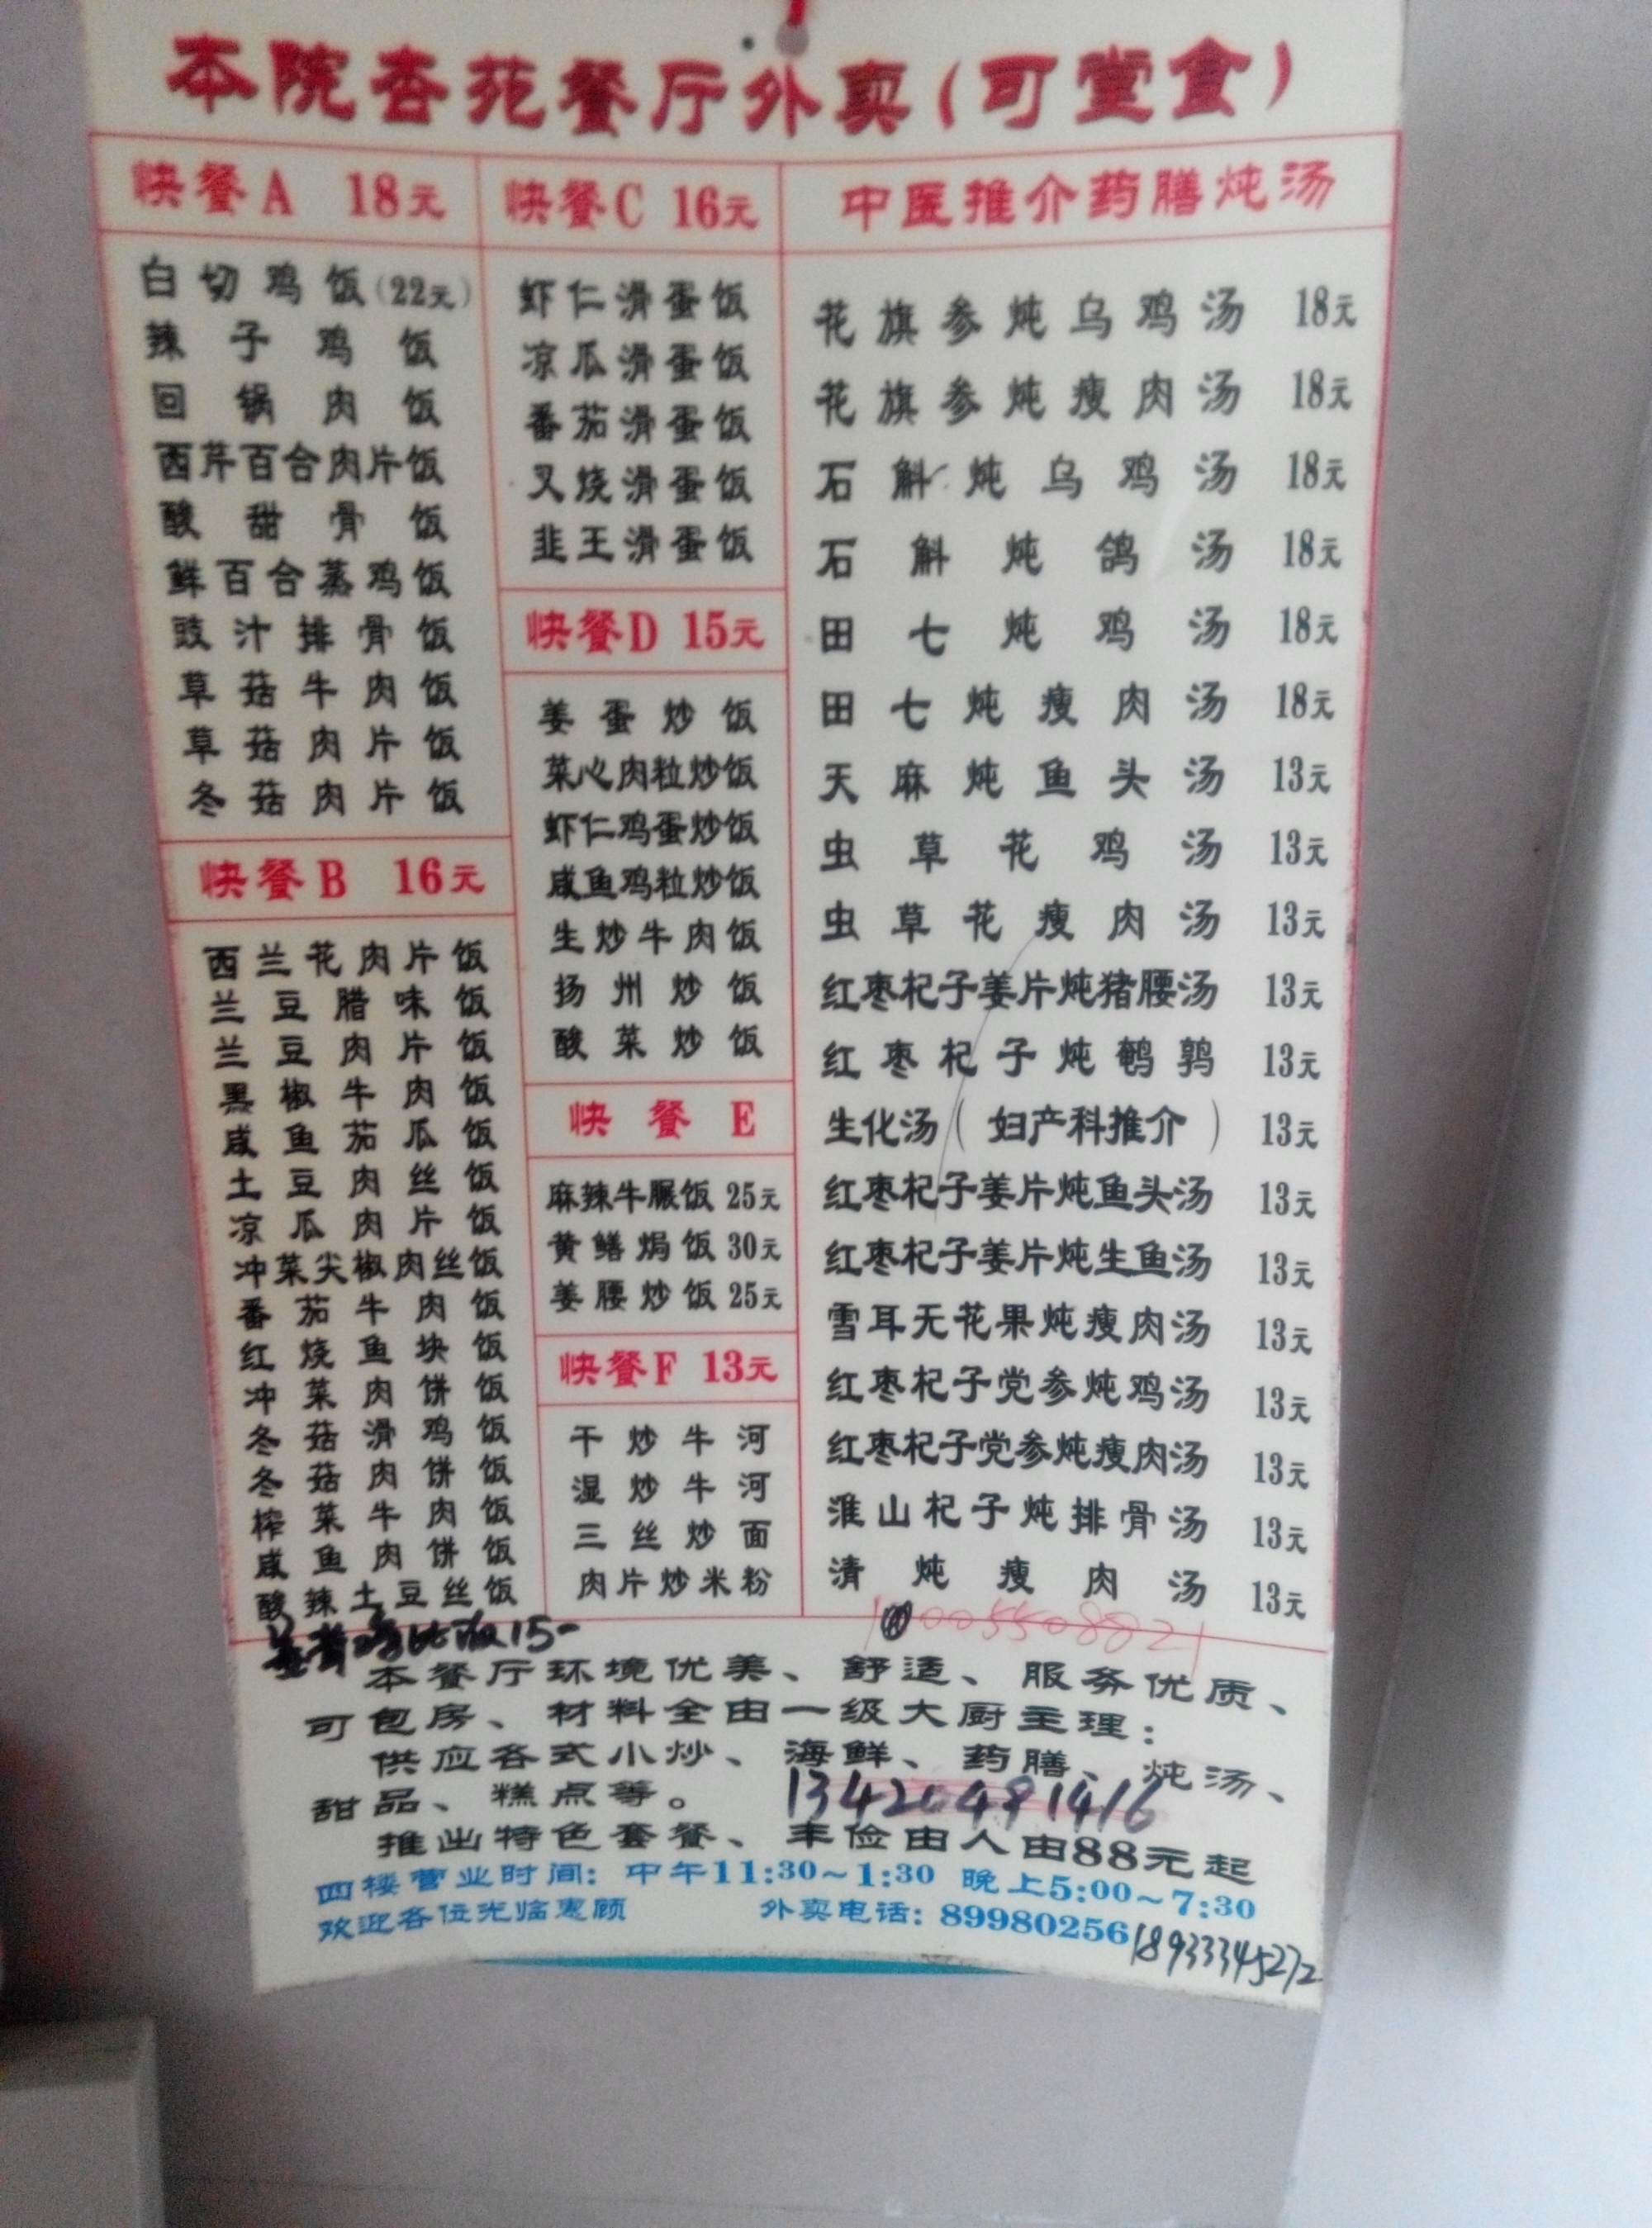 本院杏苑餐厅外卖(可堂食)
快餐A 18元
白切鸡饭(22元)
辣子鸡饭
回锅肉饭
西芹百合肉片饭
酸甜骨饭
鲜百合蒸鸡饭
豉汁排骨饭
草菇牛肉饭
草菇肉片饭
冬菇肉片饭
快餐B 16元
西兰花肉片饭
兰豆腊味饭
兰豆肉片饭
黑椒牛肉饭
咸鱼茄瓜饭
土豆肉丝饭
凉瓜肉片饭
冲菜尖椒肉丝饭
番茄牛肉饭
红烧鱼块饭
冲菜肉饼饭
冬菇滑鸡饭
冬菇肉饼饭
榨菜牛肉饭
咸鱼肉饼饭
酸辣土豆丝饭
15-
快餐C 16元
虾仁滑蛋饭
凉瓜滑蛋饭
番茄滑蛋饭
叉烧滑蛋饭
韭王滑蛋饭
快餐D 15元
姜蛋炒饭
菜心肉粒炒饭
虾仁鸡蛋炒饭
咸鱼鸡粒炒饭
生炒牛肉饭
扬州炒饭
酸菜炒饭
快餐E
麻辣牛𦟌饭 25元
黄鳝焗饭 30元
姜腰炒饭 25元
快餐F 13元
干炒牛河
湿炒牛河
三丝炒面
肉片炒米粉
中医推介药膳炖汤
花旗参炖乌鸡汤 18元
花旗参炖瘦肉汤 18元
石斛炖乌鸡汤 18元
石斛炖鸽汤 18元
田七炖鸡汤 18元
田七炖瘦肉汤 18元
天麻炖鱼头汤 13元
虫草花鸡汤 13元
虫草花瘦肉汤 13元
红枣杞子姜片炖猪腰汤 13元
红枣杞子炖鹌鹑 13元
生化汤(妇产科推介) 13元
红枣杞子姜片炖鱼头汤 13元
红枣杞子姜片炖生鱼汤 13元
雪耳无花果炖瘦肉汤 13元
红枣杞子党参炖鸡汤 13元
红枣杞子党参炖瘦肉汤 13元
淮山杞子炖排骨汤 13元
清炖瘦肉汤 13元
本餐厅环境优美、舒适、服务优质、
可包房、材料全由一级大厨主理:
供应各式小炒、海鲜、药膳、炖汤、
甜品、糕点等。
13420481416
推出特色套餐、丰俭由人由88元起
四楼营业时间: 中午11:30~1:30 晚上5:00~7:30
欢迎各位光临惠顾 外卖电话: 89980256
18933345272